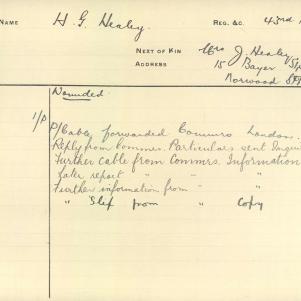 NAME H. G. Healey REG. &C. 43rd
NEXT OF KIN Mrs J. Healey
ADDRESS 15 Bayer
Norwood
Wounded
P/Cable, forwarded Commrs London.
Reply from Commr. Particulars sent
Further cable from Commrs. Information
Later report " " "
Further information from " "
" Slip from " Copy